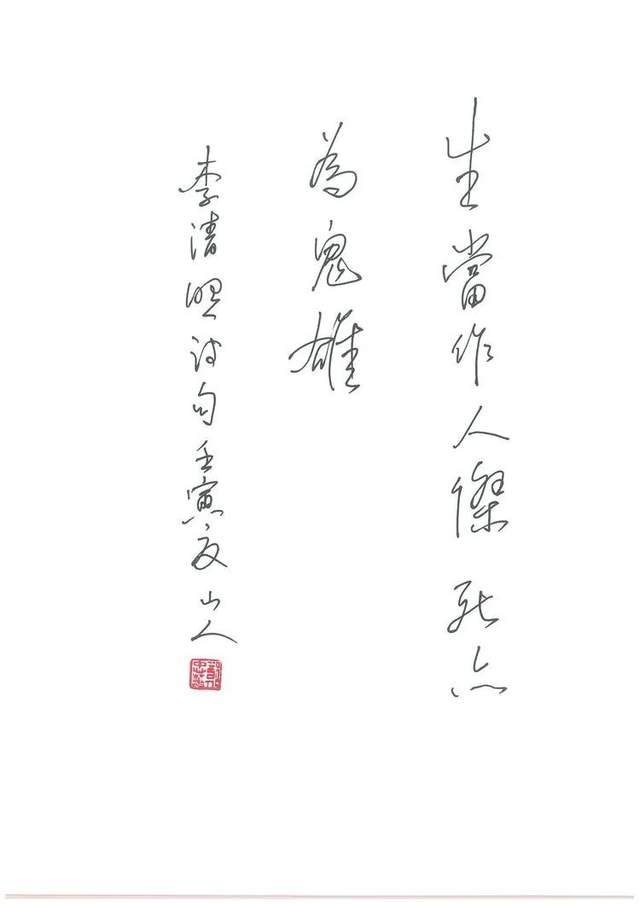 生當作人傑死亦
為鬼雄
李清照詩句壬寅夏山人